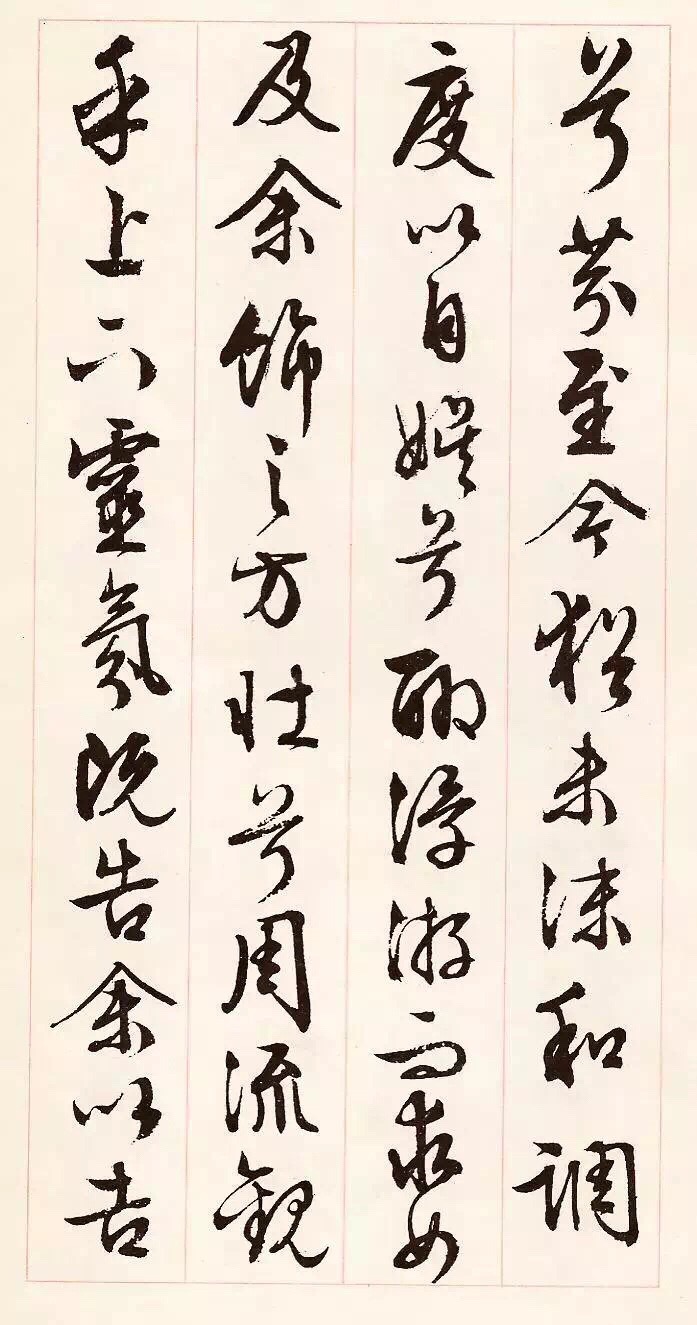 兮芬至今猶未沫和調
度以自娛兮聊浮游而求女
及余飾之方壯兮周流觀
乎上下靈氛既告余以吉